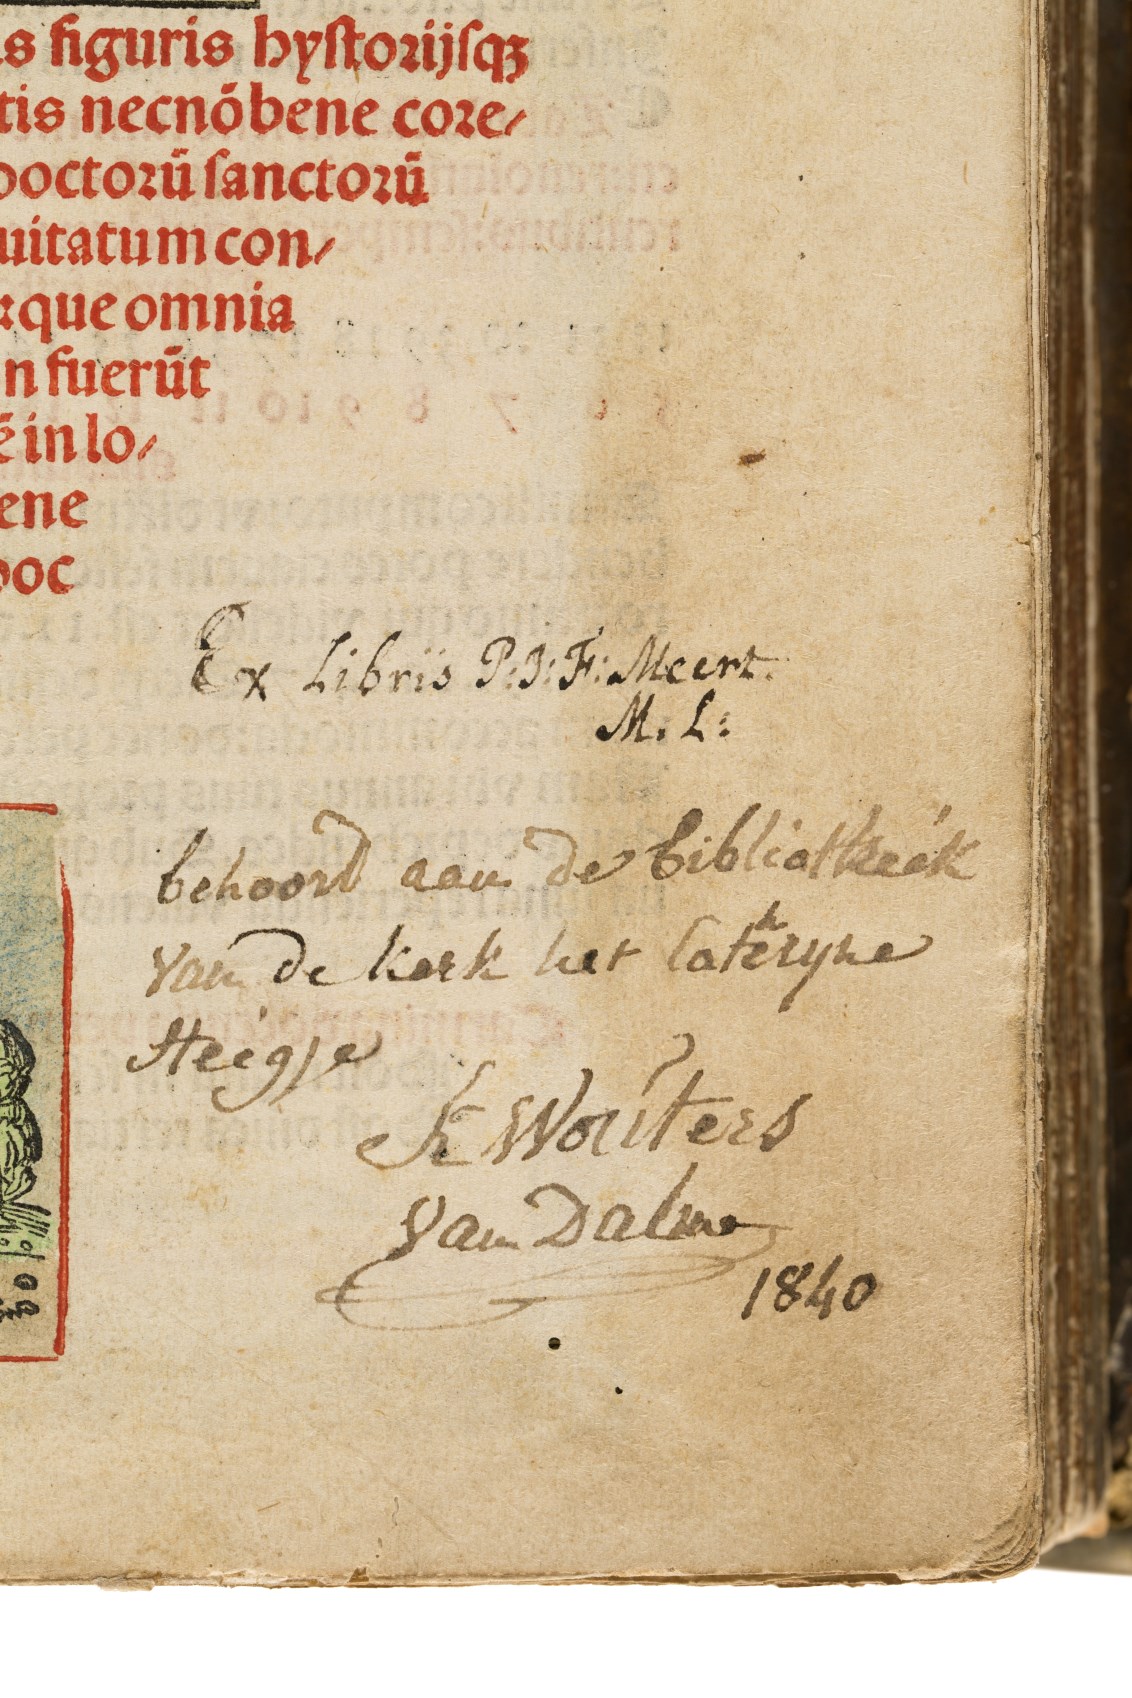 s figuris hyſtorijſqꝫ
tis necnō bene core⸗
doctorū ſanctorū
uitatum con⸗
rque omnia
n fuerūt
ē in lo⸗
ene
doc
Ex Libriis P: J: F: Meert.
M. L:
behoord aan de bibliotheek
van de kerk het Catheryne
Steegje
Wouters
van Dalme
1840